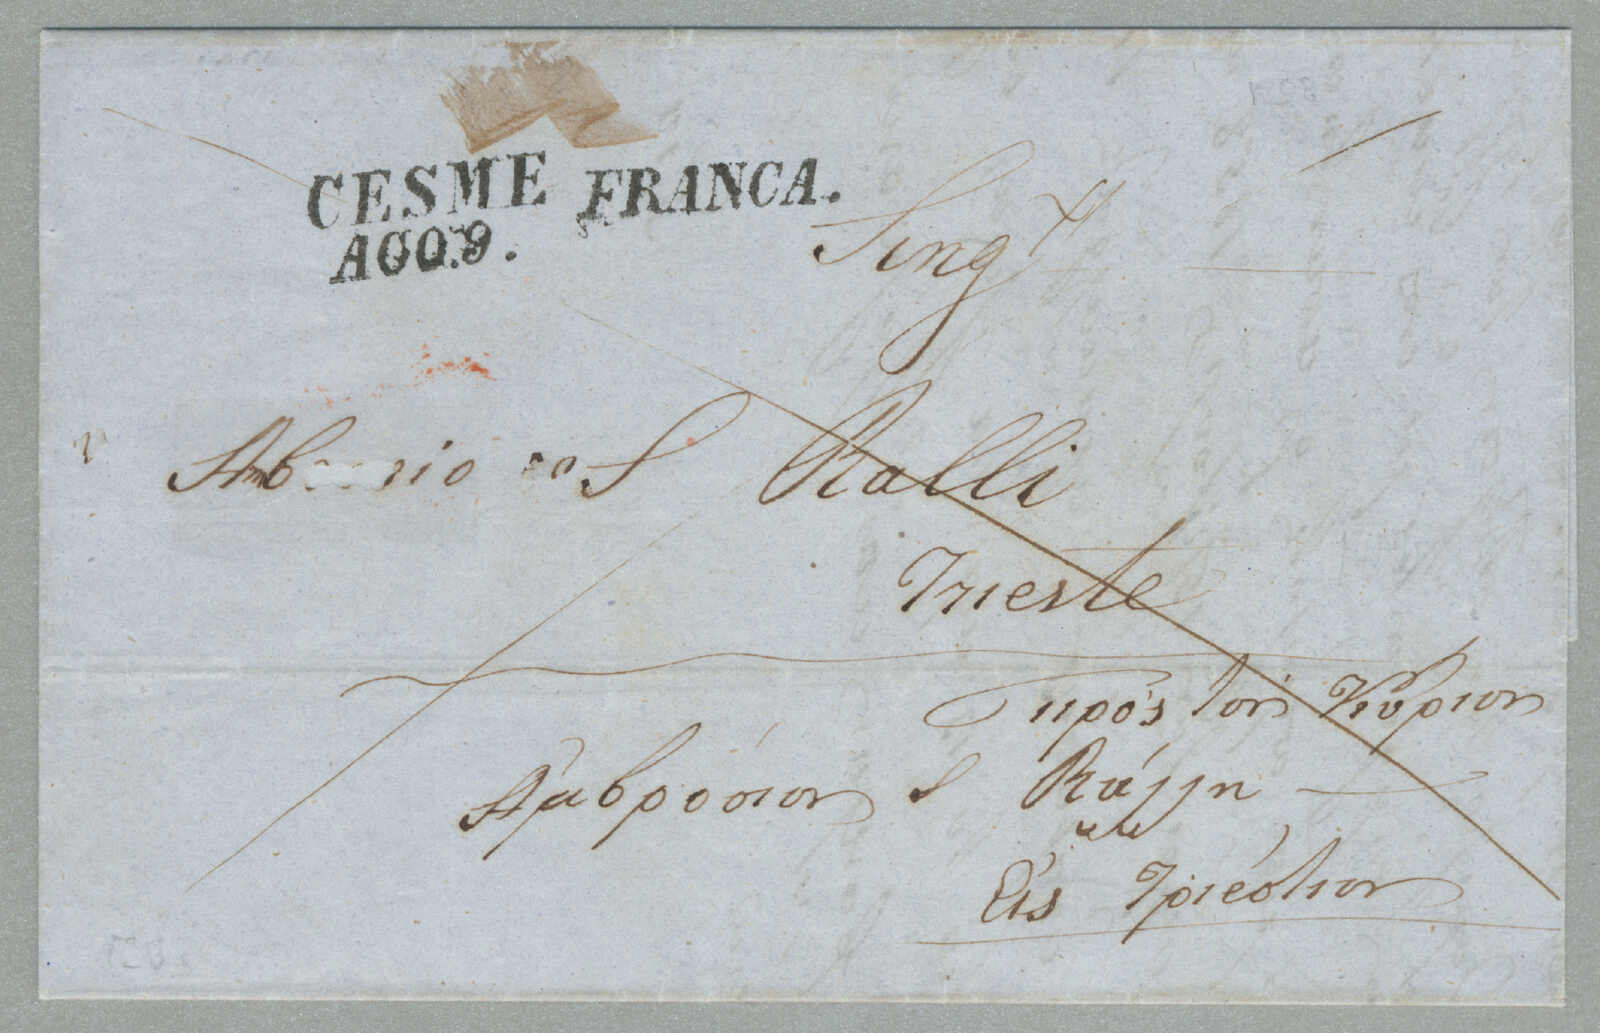 CESME FRANCA.
AGO.9.
Sing.r
S Ralli
Trieste
πρός τόν Κύριον
Ἀμβρόσιον S Ράλλη
Εἰς Τριέστιον